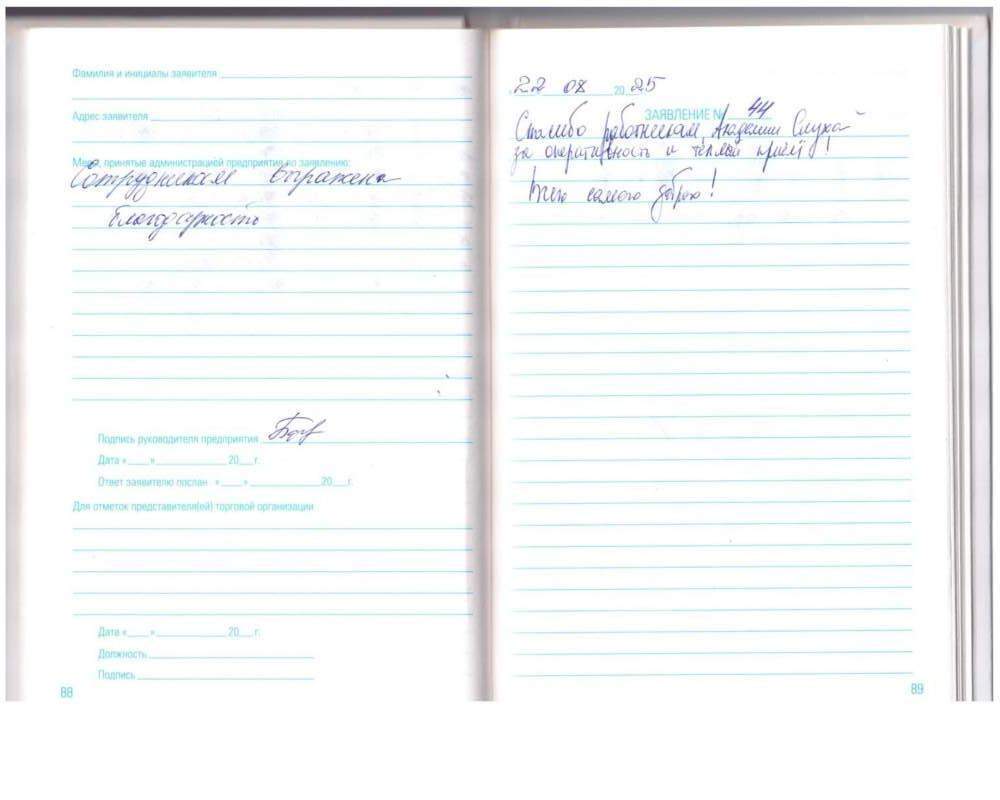 Фамилия и инициалы заявителя
Адрес заявителя
Меры, принятые администрацией предприятия по заявлению:
Сотрудникам выражена
благодарность
Подпись руководителя предприятия
Дата «___» ____________ 20___г.
Ответ заявителю послан «___» ____________ 20___г.
Для отметок представителя(ей) торговой организации
Дата «___» ____________ 20___г.
Должность
Подпись
88
22 08 2025
ЗАЯВЛЕНИЕ № 44
Спасибо работникам Академии Слуха
за оперативность и тёплый приём!
Всего самого доброго!
89